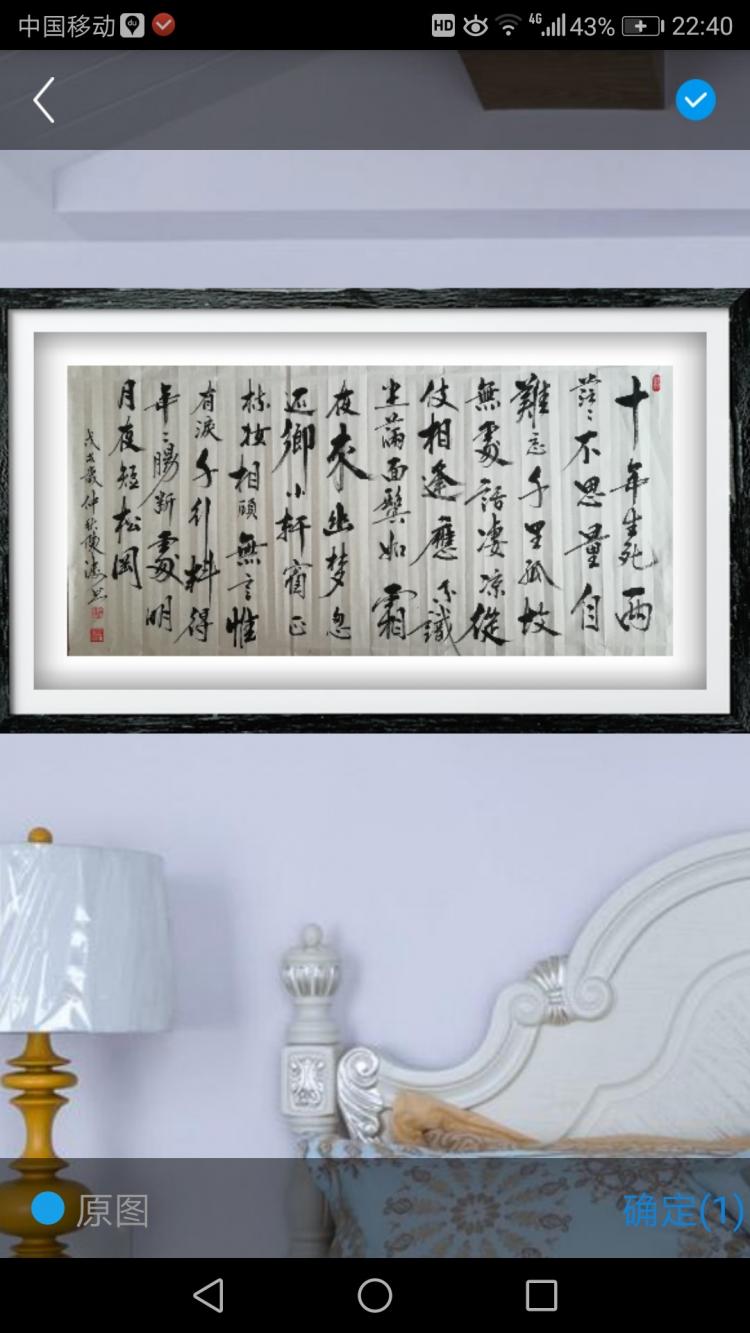 中国移动 HD 4G 43% 22:40
十年生死两
茫〻不思量自
難忘千里孤坟
無處話凄凉縱
使相逢應不識
尘滿面鬓如霜
夜來幽梦忽
还鄉小軒窗正
梳妆相顧無言惟
有淚千行料得
年〻腸斷處明
月夜短松岡
戊戌歲仲秋陳
原图
确定(1)